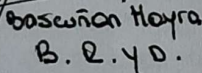 Bascuñan Mayra
B. R. y D.